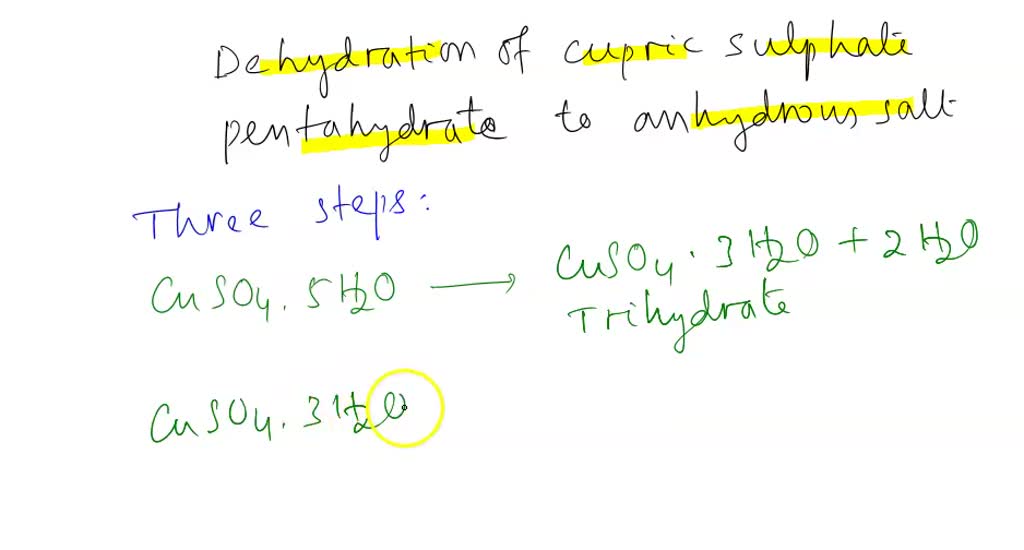 Dehydration of cupric sulphate
pentahydrate to anhydrous salt
Three steps:
CuSO4 . 5H2O ⟶ CuSO4 . 3H2O + 2H2O
Trihydrate
CuSO4 . 3H2O